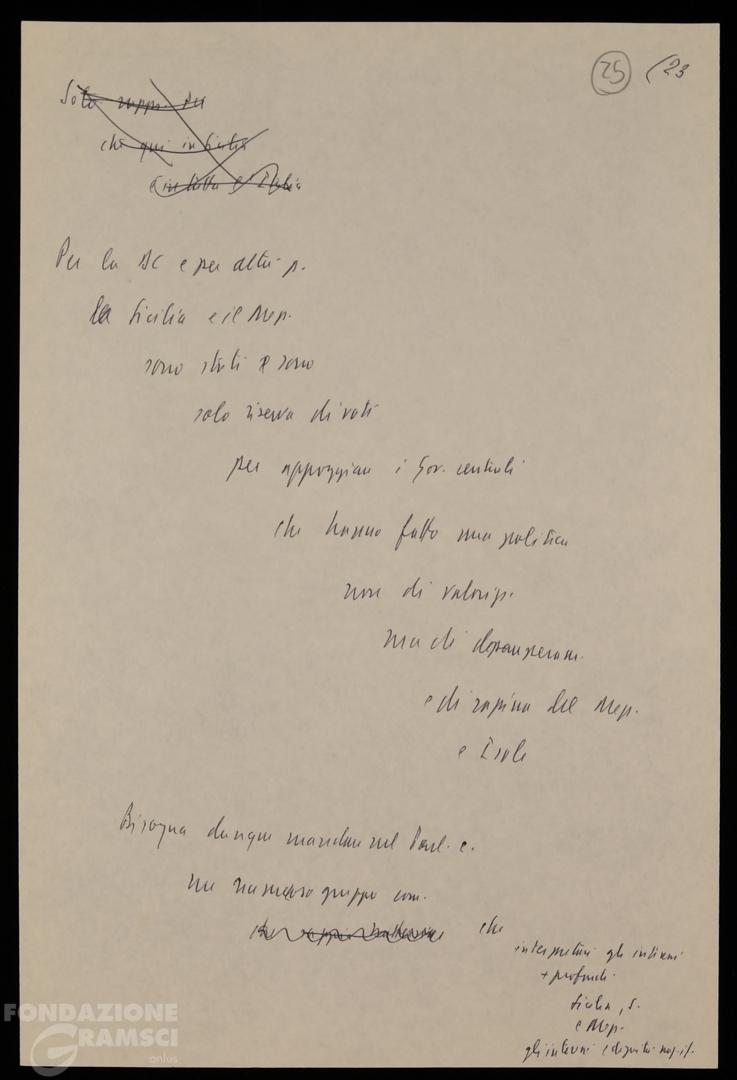 25 (23
Solo rappr. del
che qui in Sicilia
e in tutta l'Italia
Per la DC e per altri p.
la Sicilia e il Mep.
sono stati e sono
solo riserva di voti
per appoggiare i Gov. centrali
che hanno fatto una politica
non di valoriz.
ma di depauperam.
e di rapina del Mep.
e Isole
Bisogna dunque mandare nel Parl. e.
un numeroso gruppo com.
che
interpretino gli interessi
+ profondi
Sicilia, S.
e Mep.
gli interessi e dignità naz. it.
FONDAZIONE
GRAMSCI
onlus